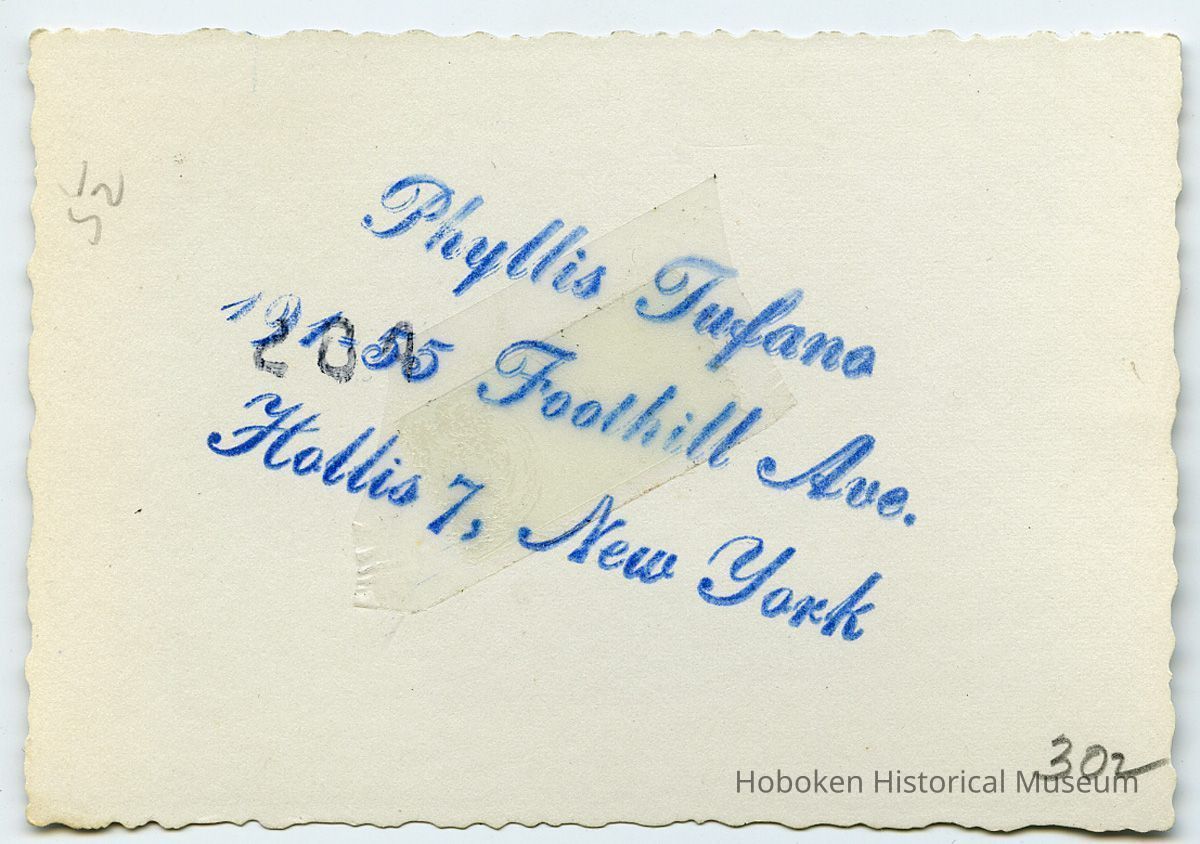 Phyllis Tufano
191-55 Foothill Ave.
Hollis 7, New York
302
Hoboken Historical Museum